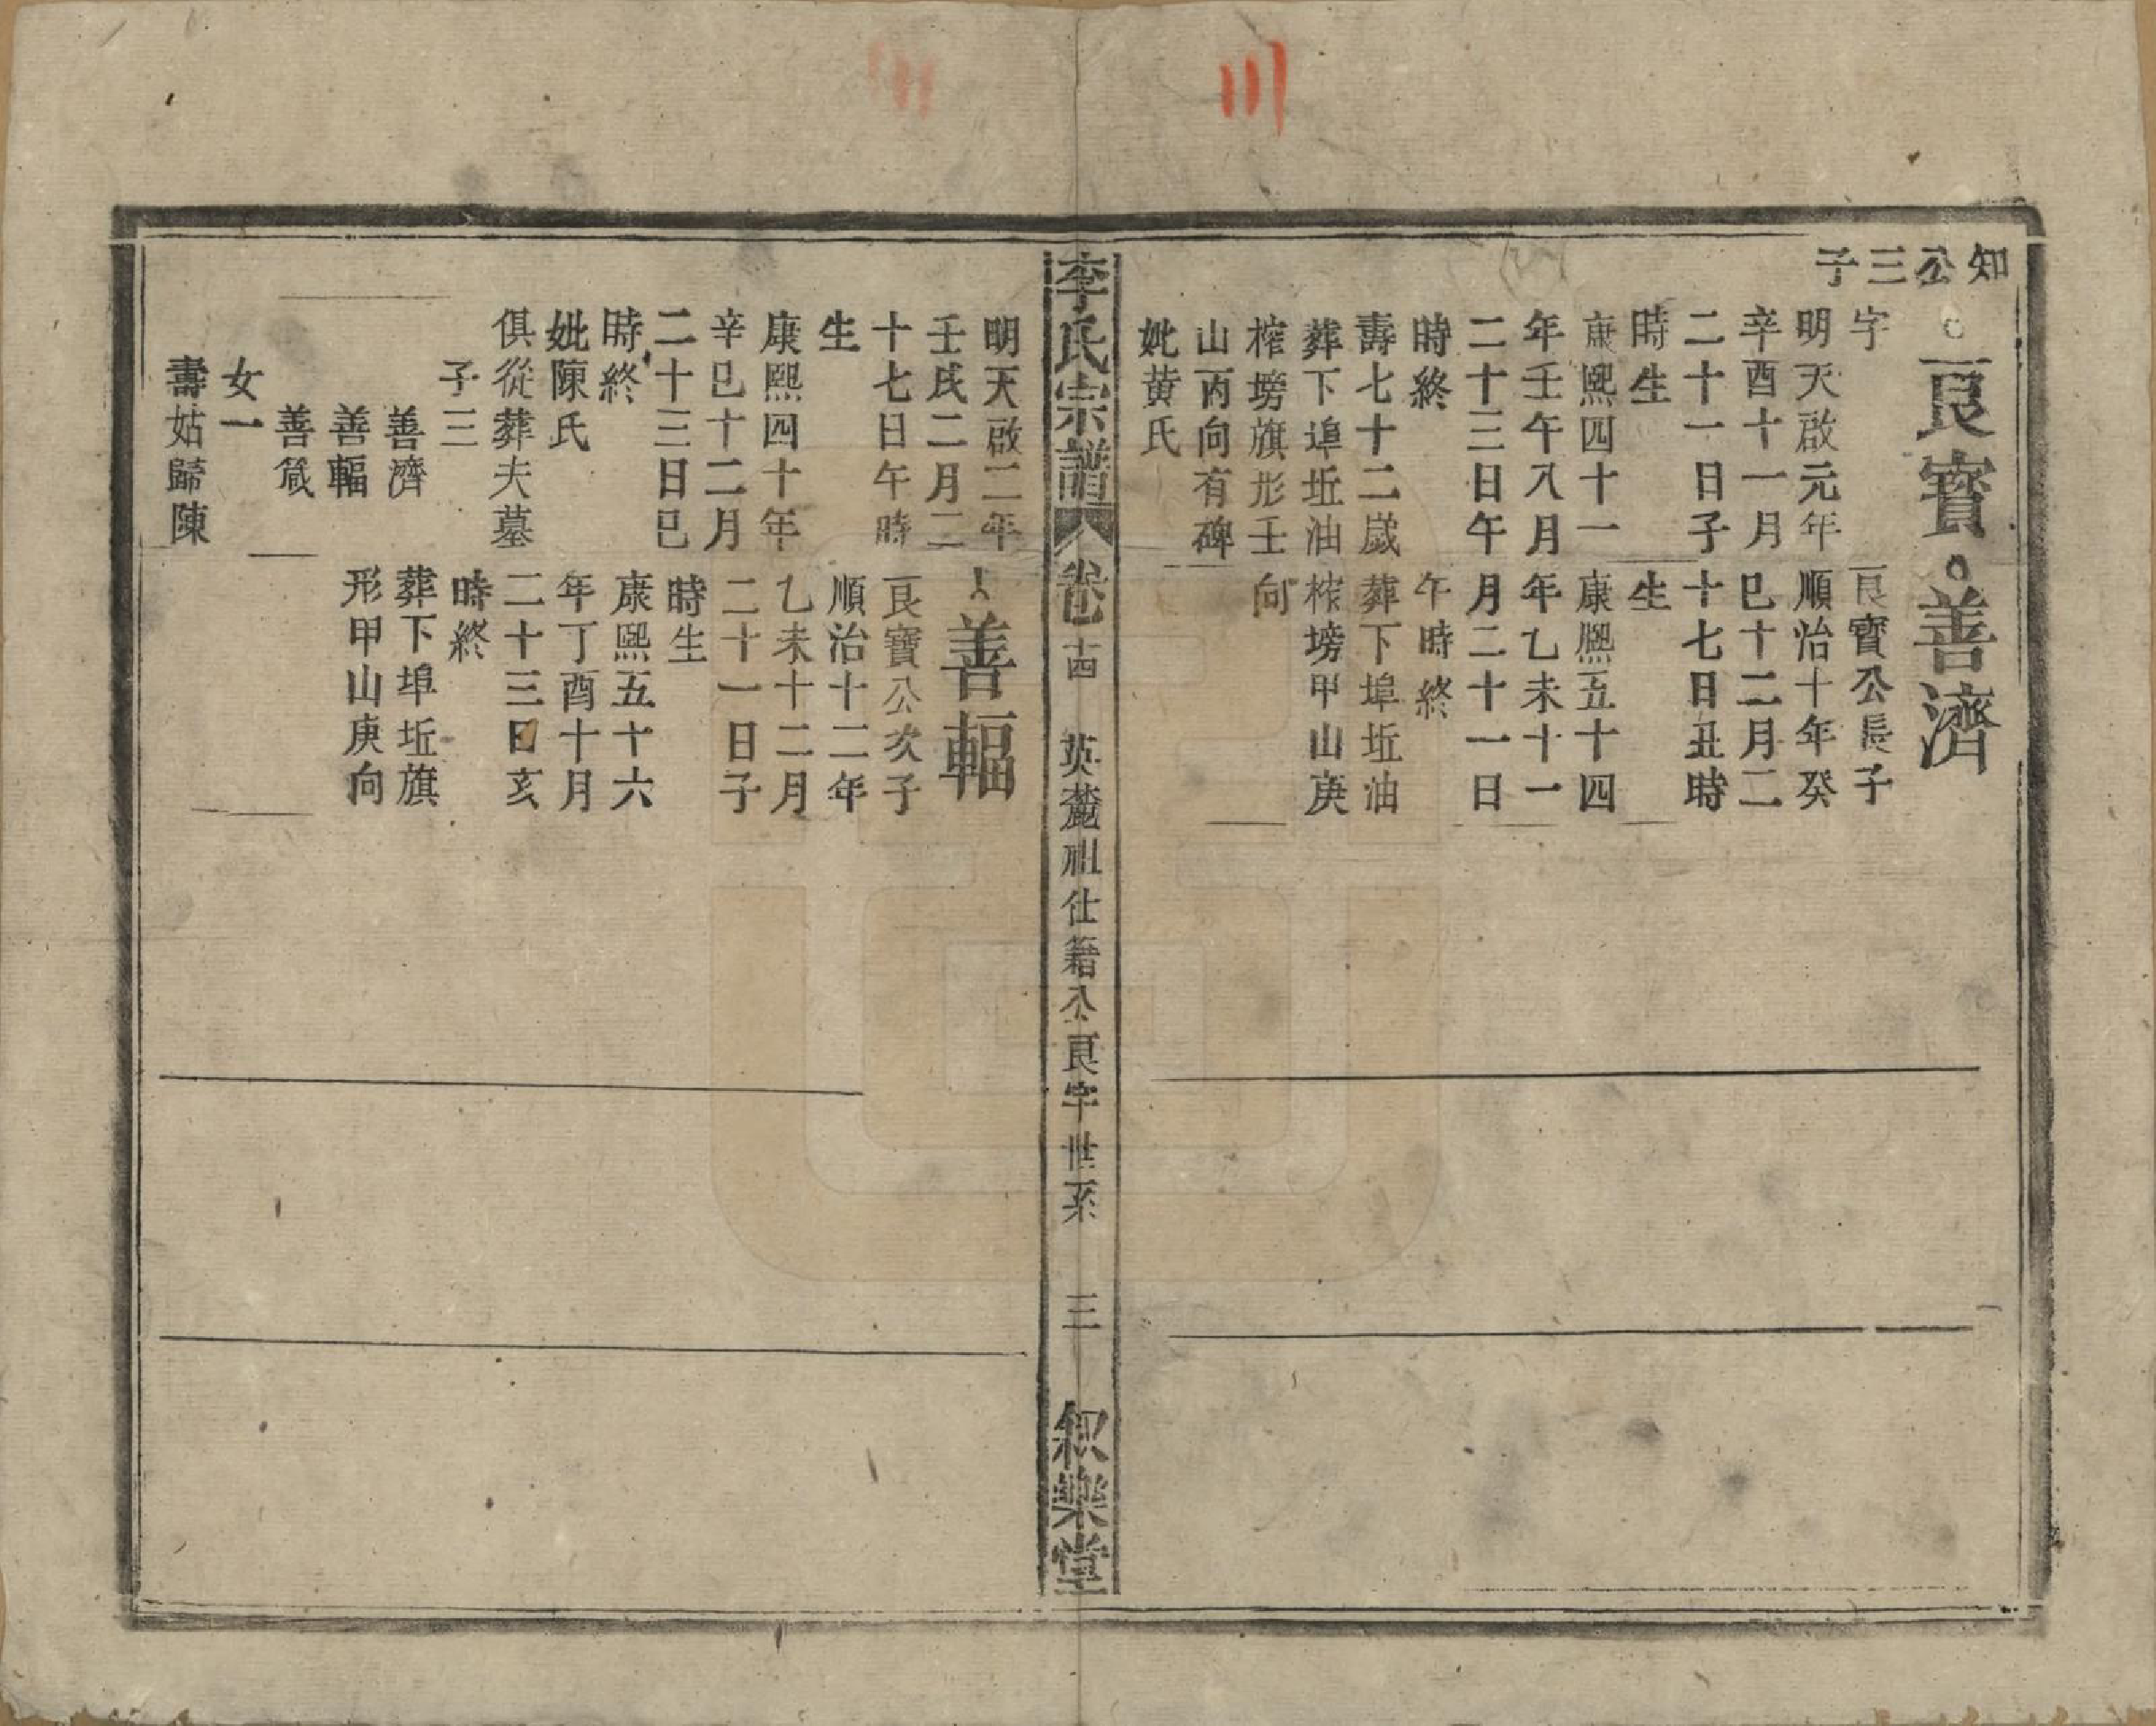 知公三子
良寳
字
明天啟元年
辛酉十一月
二十一日子
時生
康熙四十一
年壬午八月
二十三日午
時終
壽七十二歲
葬下埠坵油
榨塝旗形壬
山丙向有碑
妣黄氏
善濟
良寳公長子
順治十年癸
巳十二月二
十七日丑時
生
康熙五十四
年乙未十一
月二十一日
午時終
葬下埠坵油
榨塝甲山庚
向
李氏宗譜
卷十四
英麓祖仕籍公良字世系
三
叙樂堂
明天啟二年
壬戌二月二
十七日午時
生
康熙四十年
辛巳十二月
二十三日巳
時終
妣陳氏
俱從葬夫墓
子三
善濟
善輻
善箴
女一
壽姑歸陳
善輻
良寳公次子
順治十二年
乙未十二月
二十一日子
時生
康熙五十六
年丁酉十月
二十三日亥
時終
葬下埠坵旗
形甲山庚向